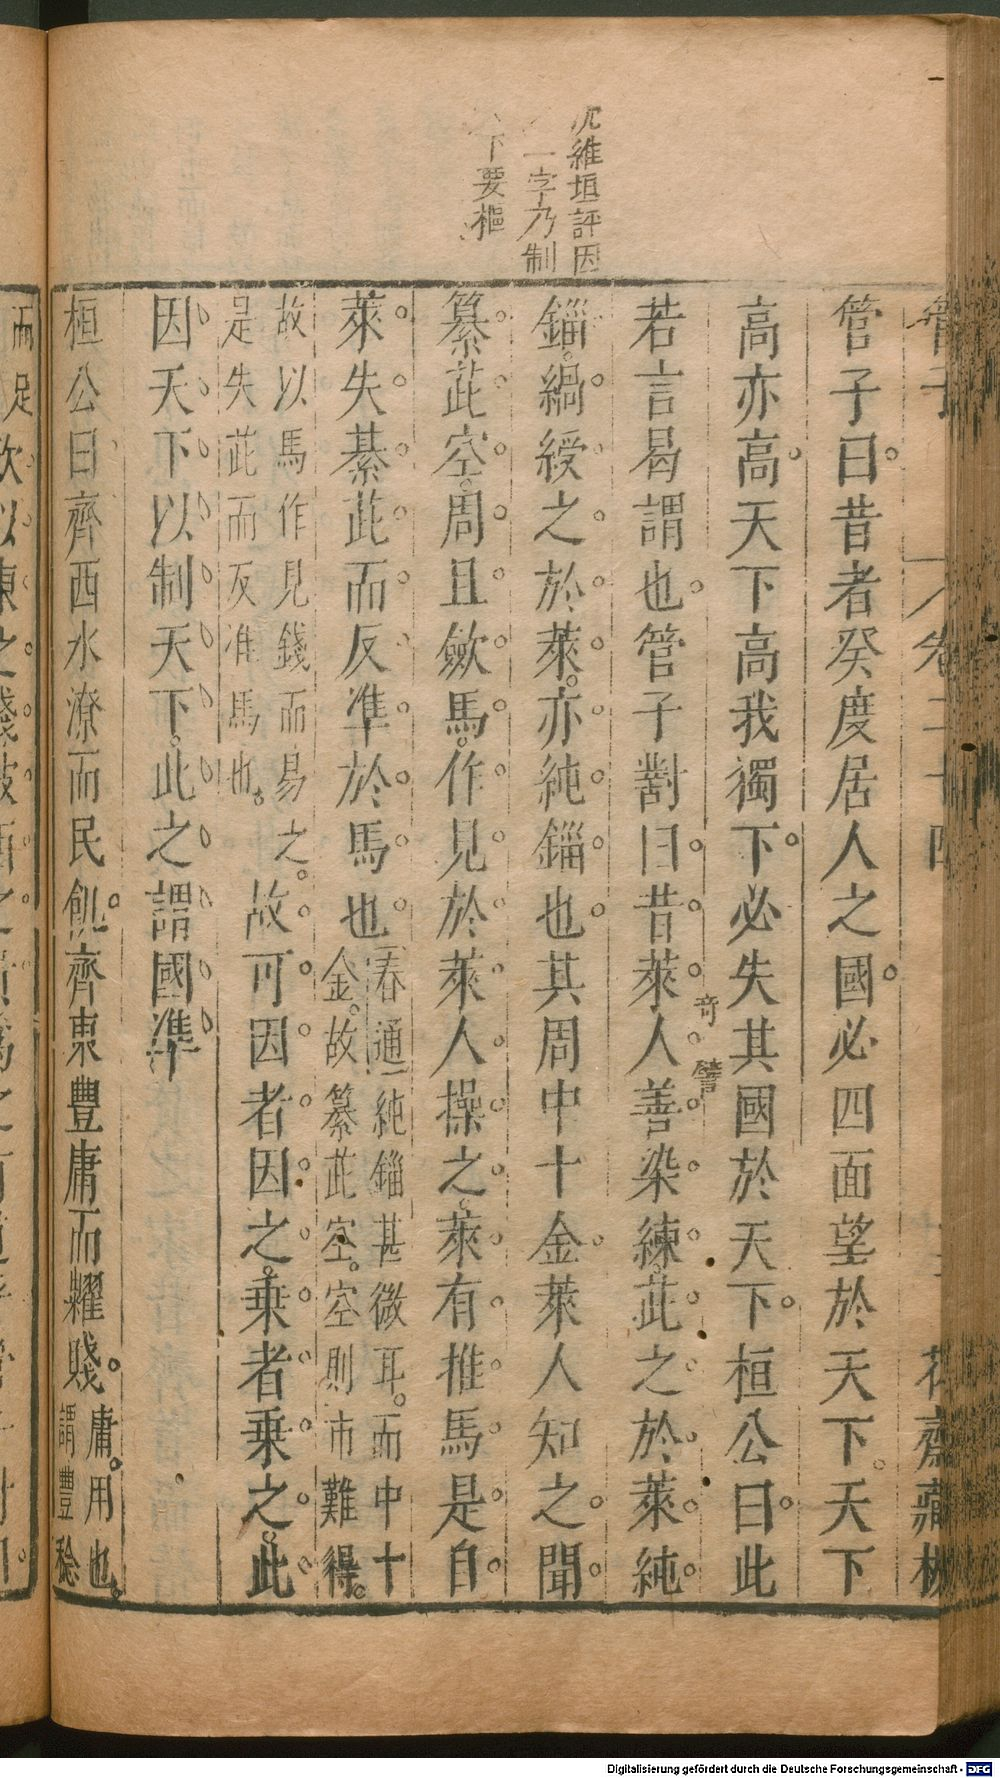 沈維垣評因
一字乃制
下要樞
管子 卷二十四 花齋藏板
管子曰昔者癸度居人之國必四面望於天下天下
高亦高天下高我獨下必失其國於天下桓公曰此
若言曷謂也管子對曰昔萊人善染練茈之於萊純
奇譬
錙緺綬之於萊亦純錙也其周中十金萊人知之聞
纂茈空周且歛馬作見於萊人操之萊有推馬是自
萊失綦茈而反準於馬也春通純錙甚微耳而中十
金故纂茈空空則市難得
故以馬作見錢而易之
是失茈而反准馬也故可因者因之乘者乘之此
因天下以制天下此之謂國準
桓公曰齊西水潦而民飢齊東豐庸而糶賤庸用也
謂豐稔